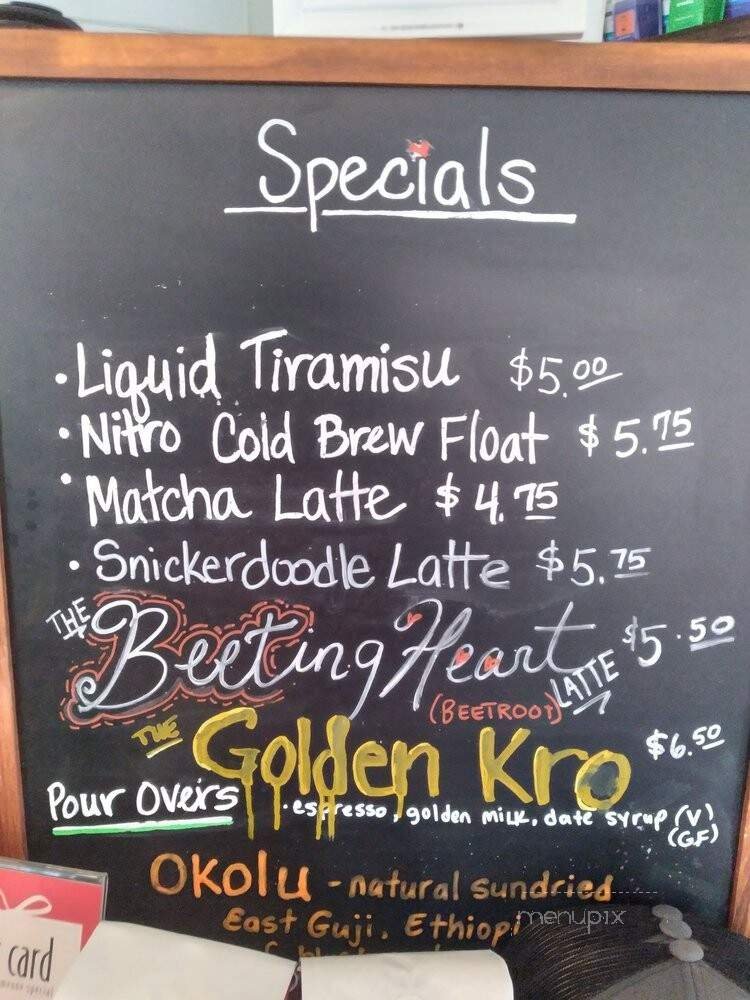 Specials
· Liquid Tiramisu $5.00
· Nitro Cold Brew Float $5.75
· Matcha Latte $4.75
· Snickerdoodle Latte $5.75
THE Beeting Heart LATTE $5.50
(BEETROOT)
THE Golden Kro $6.50
Pour Overs
· espresso, golden milk, date syrup (V)
(GF)
OKolu - natural sundried
East Guji, Ethiopi
menupix
card